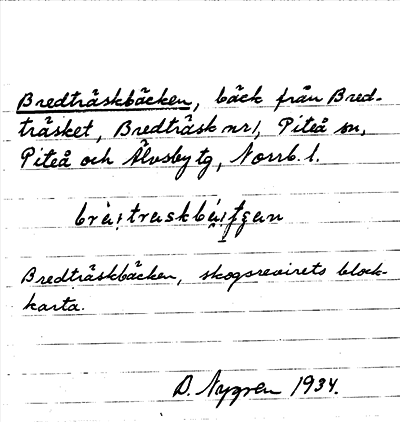 Bredträskbäcken, bäck från Bred-
träsket, Bredträsk nr 1, Piteå sn,
Piteå och Älvsby tg, Norrb. l.
Bredträskbäcken, skogsrevirets block-
karta.
D. Nygren 1934.